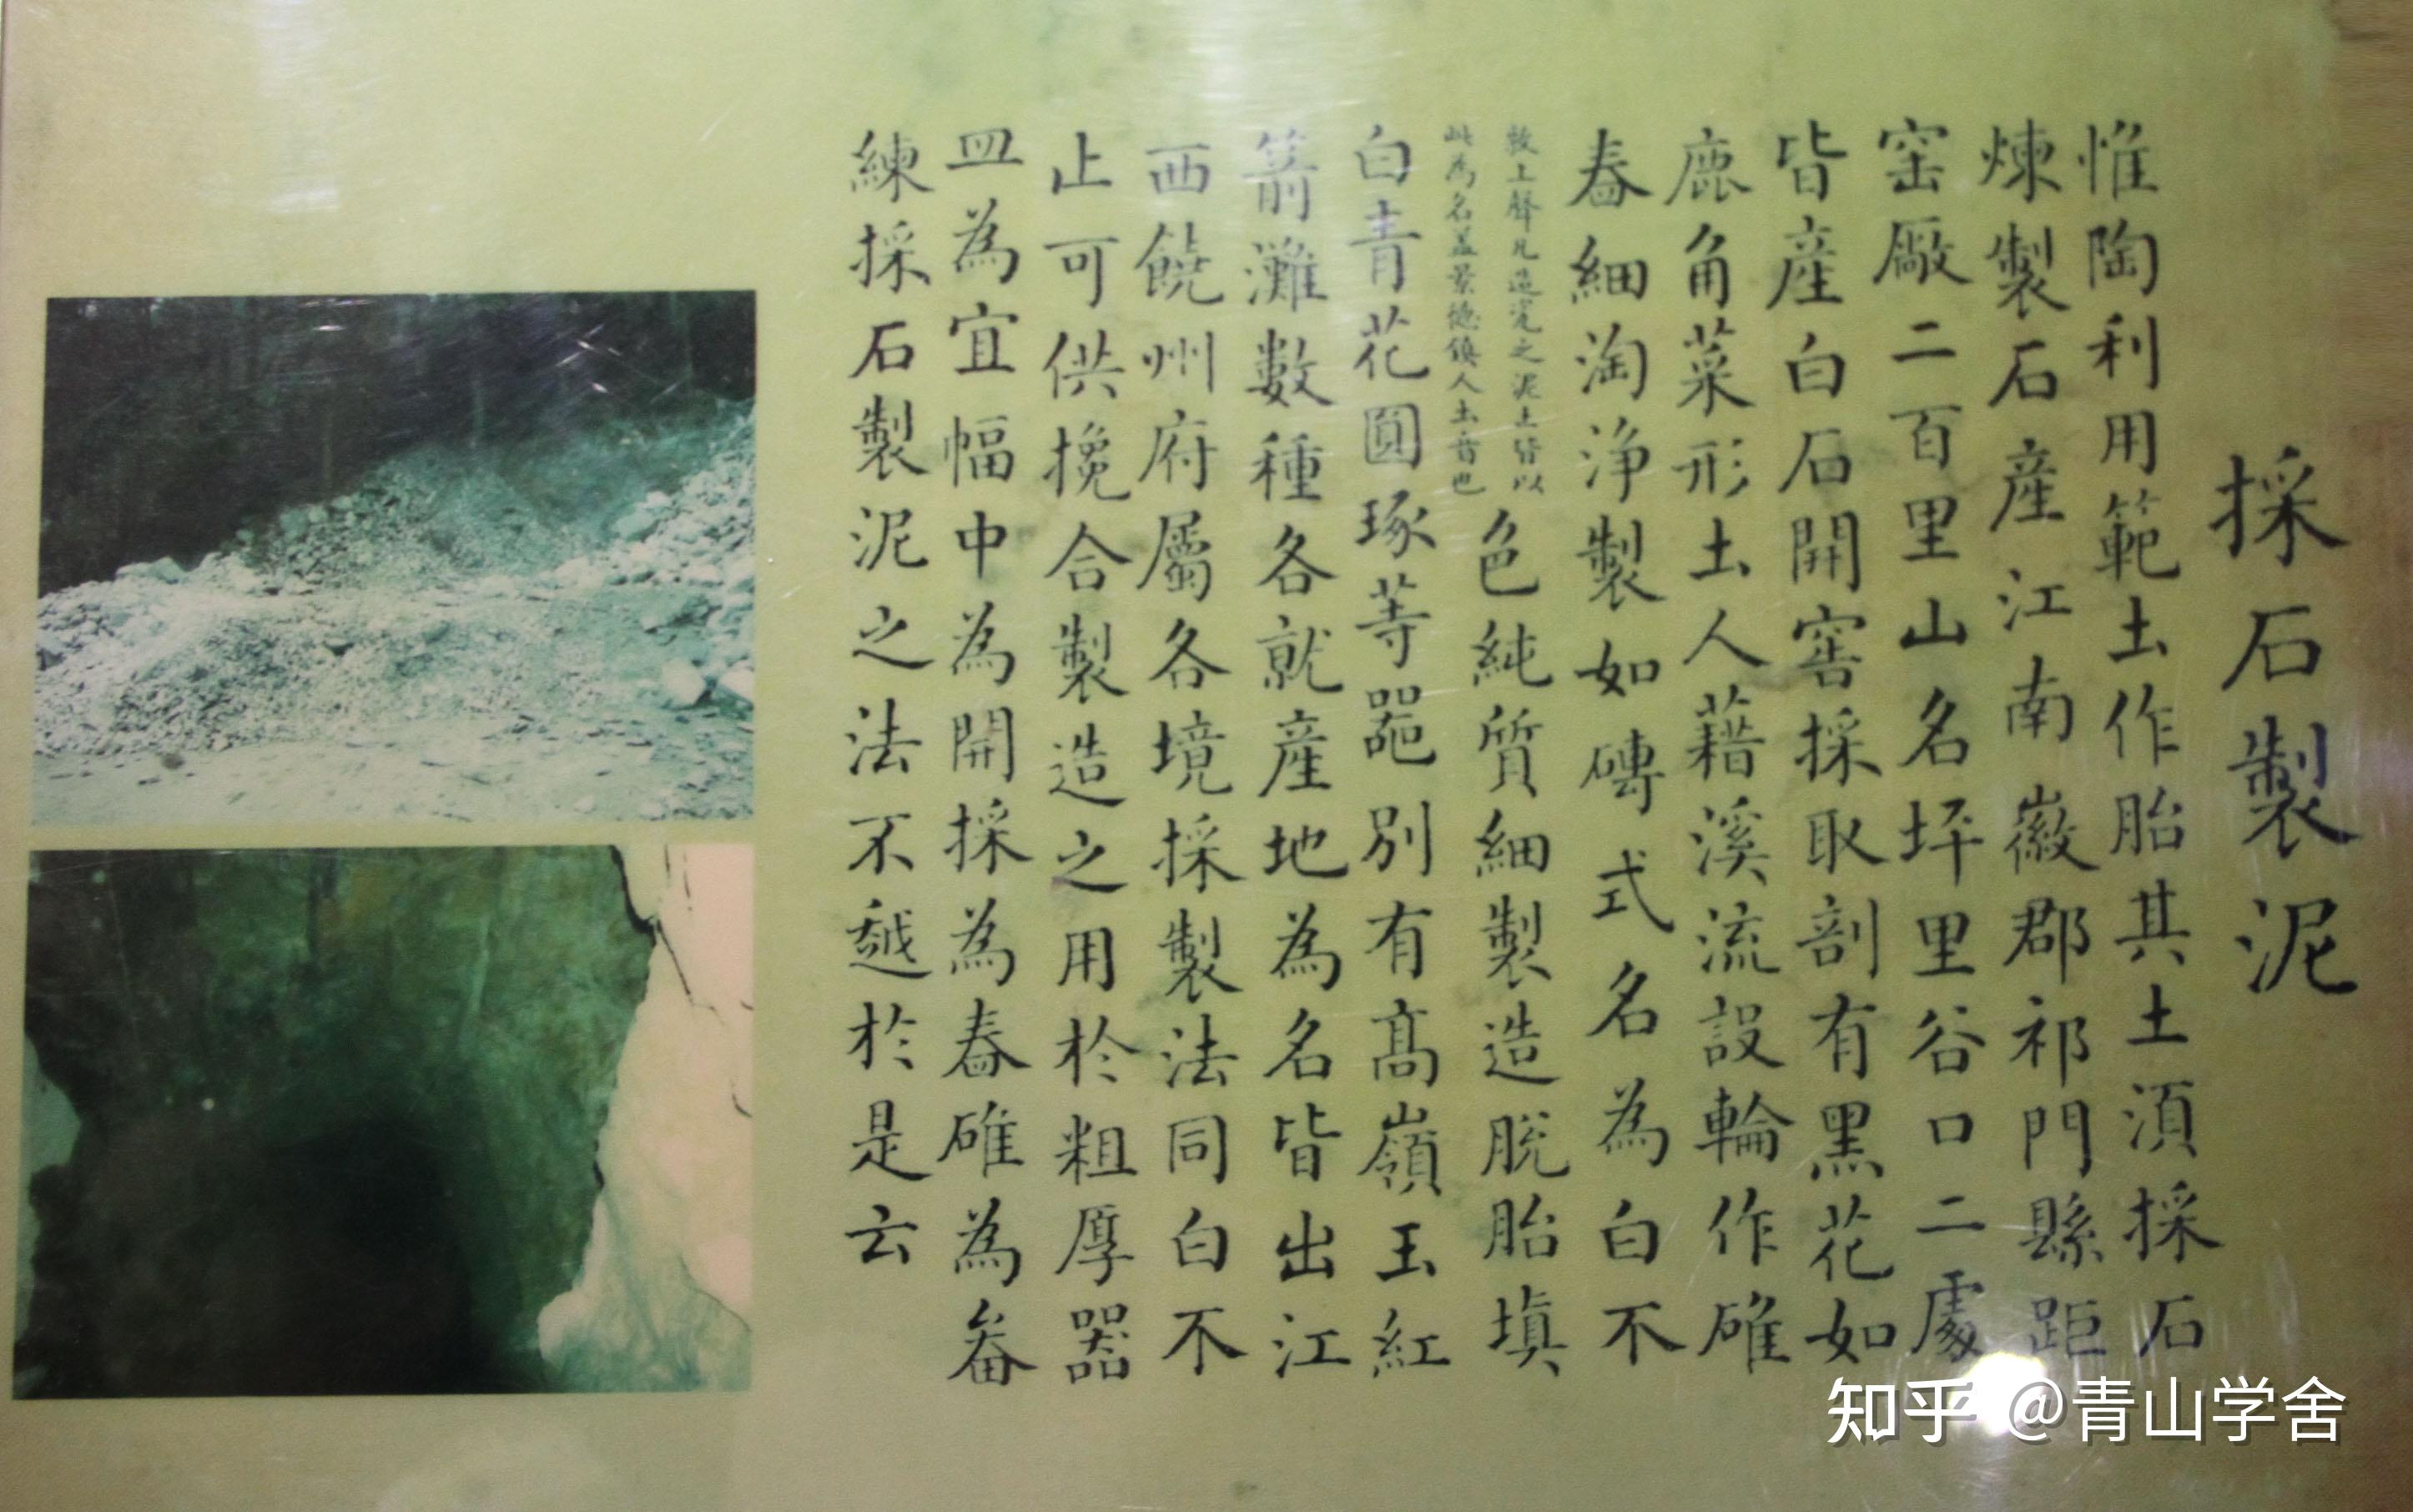 採石製泥
惟陶利用範土作胎其土須採石
煉製石產江南徽郡祁門縣距
窑厰二百里山名坪里谷口二處
皆產白石開窖採取剖有黑花如
鹿角菜形土人藉溪流設輪作碓
舂細淘淨製如磚式名為白不
敦上聲凡造瓷之泥土皆以
此為名蓋景德鎮人土音也
色純質細製造脫胎填
白青花圓琢等器別有高嶺玉紅
箭灘數種各就產地為名皆出江
西饒州府屬各境採製法同白不
止可供攙合製造之用於粗厚器
皿為宜幅中為開採為舂碓為畚
練採石製泥之法不越於是云
知乎 @青山学舍